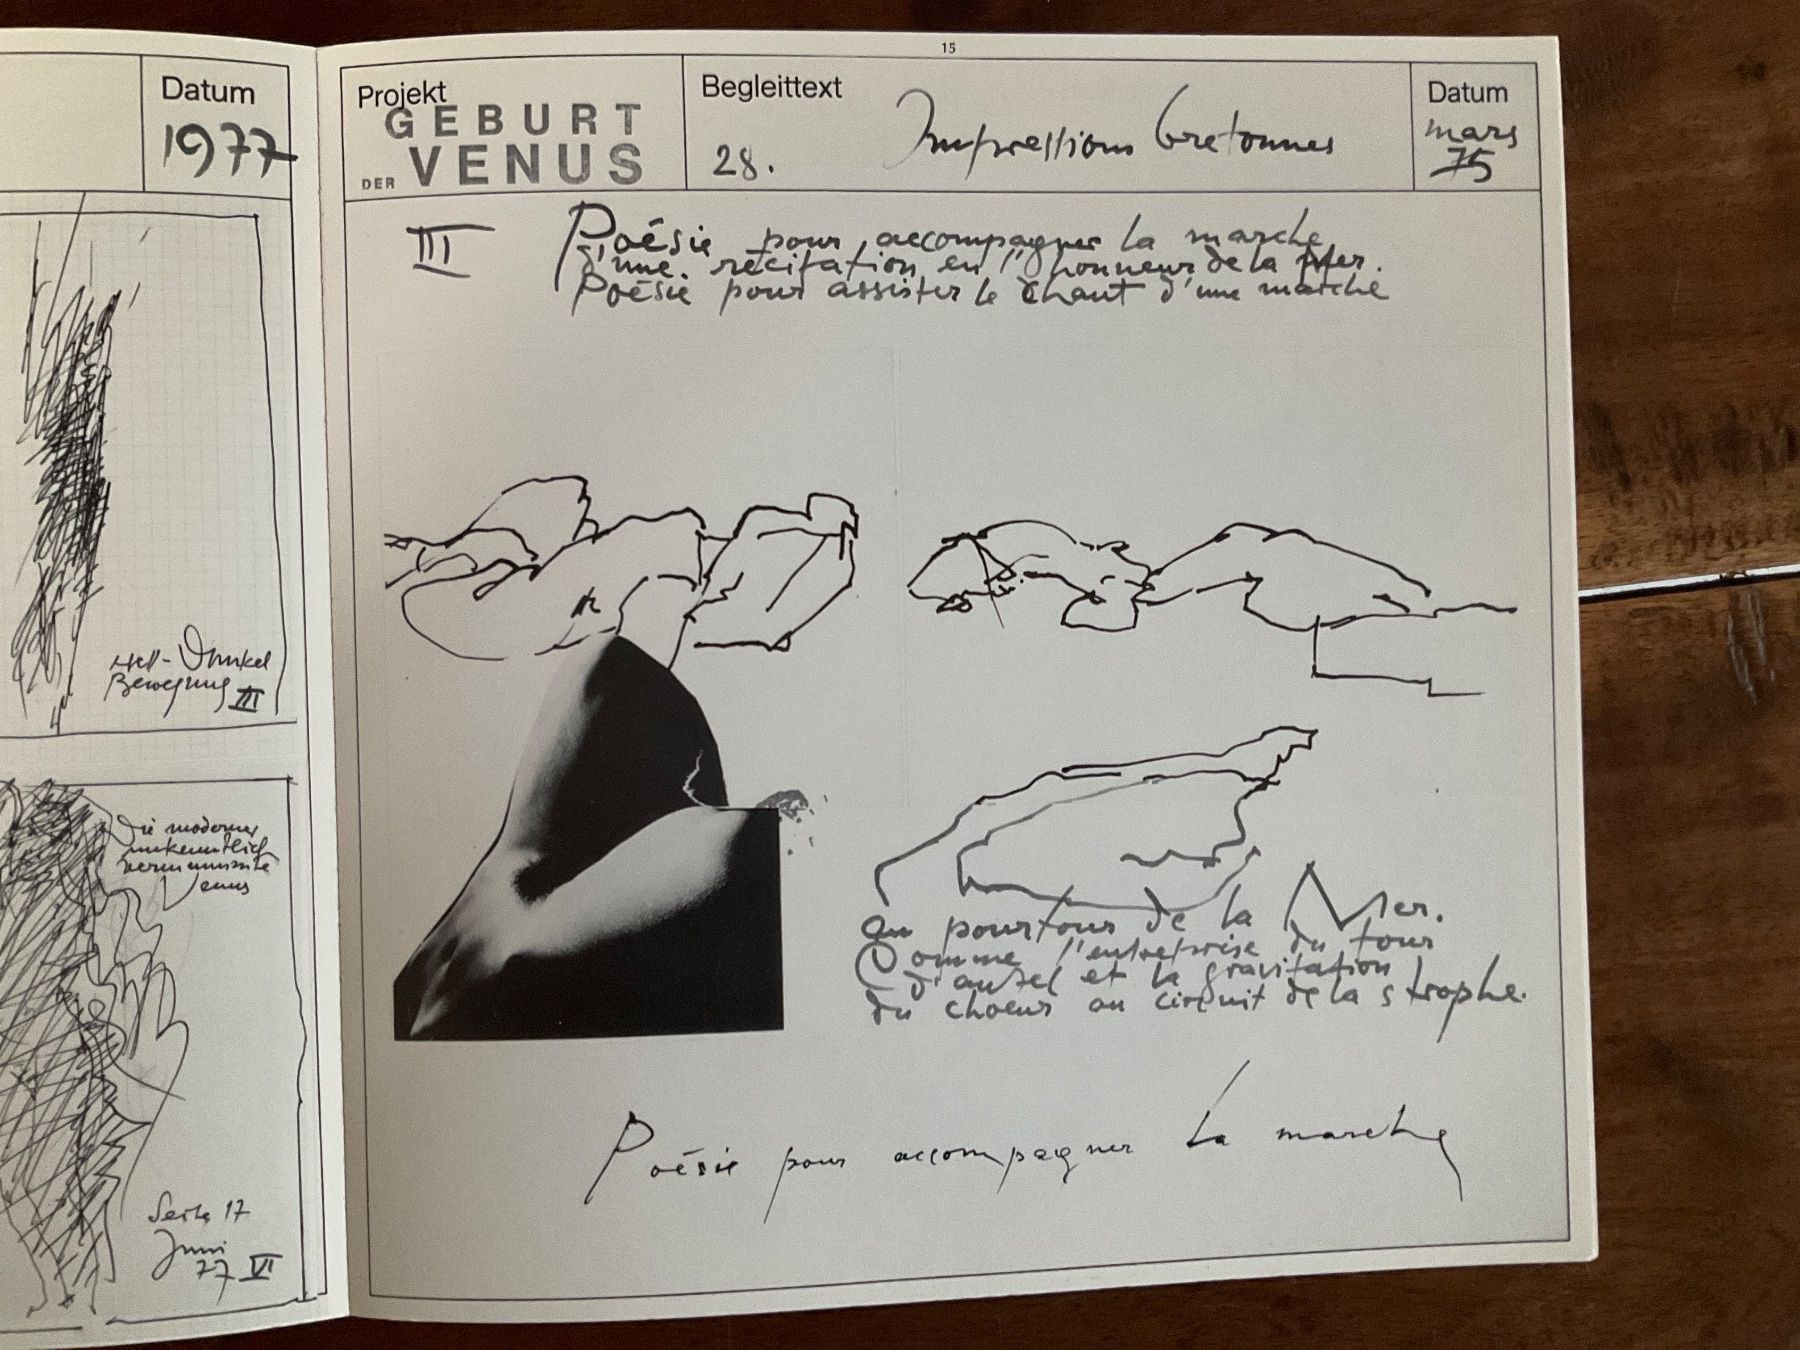 Datum
1977
Hell-Dunkel
Bewegung III
Die moderne
unkenntlich
vermummte
Venus
Seite 17
Juni
77 VI
15
Projekt
GEBURT
DER VENUS
Begleittext
28. Impressions bretonnes
Datum
mars
75
III
Poésie pour accompagner la marche
d'une récitation en l'honneur de la Mer.
Poésie pour assister le chant d'une marche
au pourtour de la Mer.
Comme l'entreprise du tour
d'autel et la gravitation
du choeur au circuit de la strophe.
Poésie pour accompagner la marche